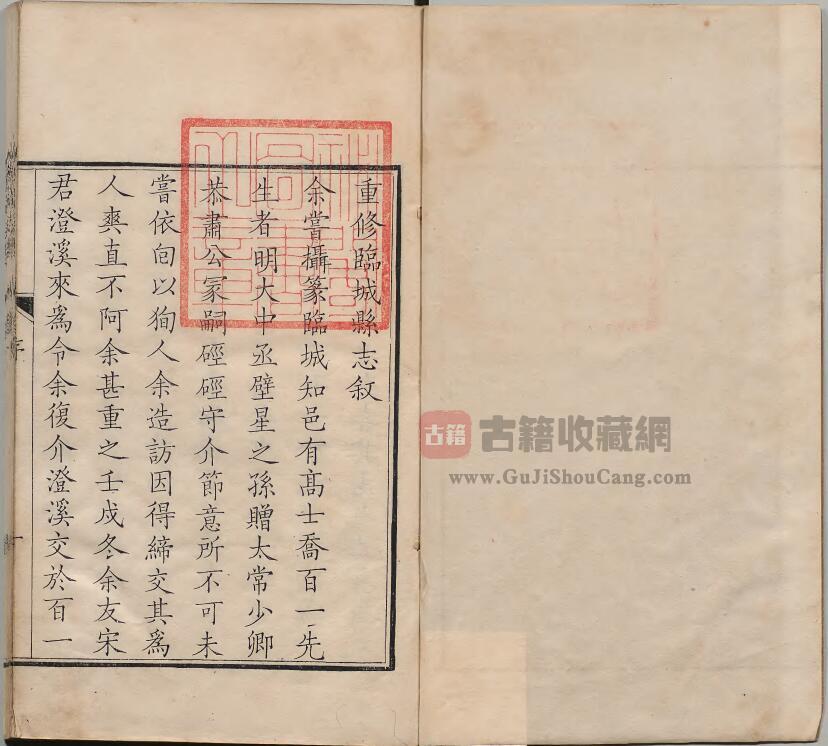 重修臨城縣志叙
余嘗攝篆臨城知邑有髙士喬百一先
生者明大中丞壁星之孫贈太常少卿
恭肅公冡嗣硜硜守介節意所不可未
嘗依向以狥人余造訪因得締交其爲
人爽直不阿余甚重之壬戍冬余友宋
君澄溪來爲令余復介澄溪交於百一
序
一
古籍
古籍收藏網
www.GuJiShouCang.com